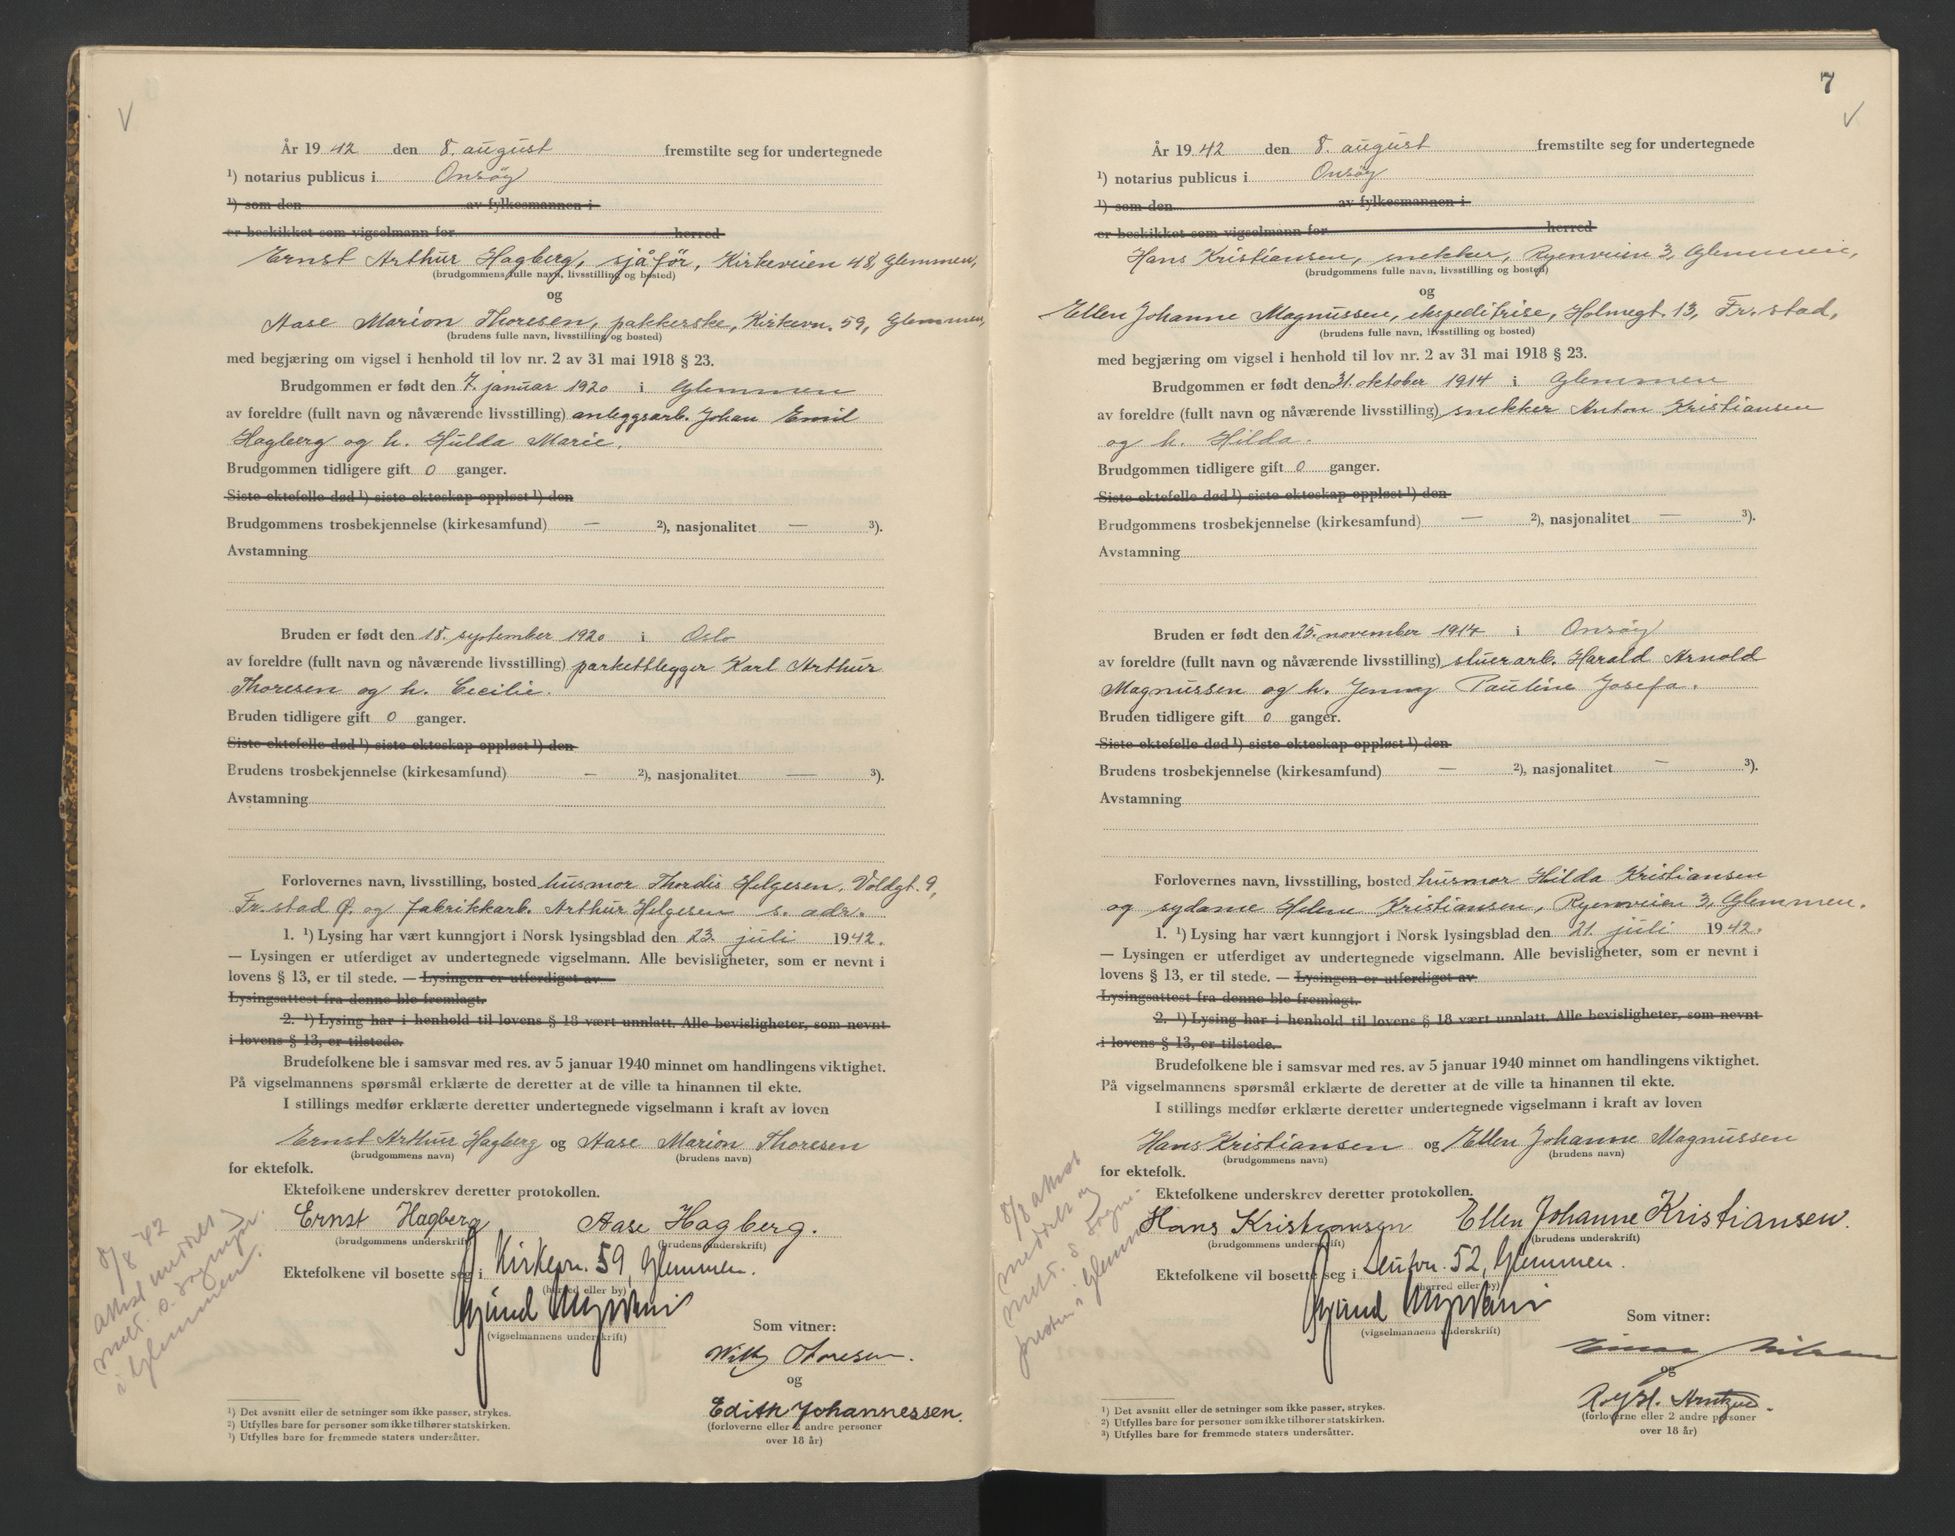 År 1942 den 8. august fremstilte seg for undertegnede
¹) notarius publicus i Onsøy
¹) som den av fylkesmannen i
er beskikket som vigselmann for herred
Ernst Arthur Hagberg, sjåfør, Kirkeveien 48, Glemmen,
(brudgommens fulle navn, livsstilling og bosted)
og
Aase Marion Thoresen, pakkerske, Kirkevn. 59, Glemmen,
(brudens fulle navn, livsstilling og bosted)
med begjæring om vigsel i henhold til lov nr. 2 av 31 mai 1918 § 23.
Brudgommen er født den 7. januar 1920 i Glemmen
av foreldre (fullt navn og nåværende livsstilling) anleggsarb. Johan Emil
Hagberg og h. Hulda Marie.
Brudgommen tidligere gift 0 ganger.
Siste ektefelle død ¹) siste ekteskap oppløst ¹) den
Brudgommens trosbekjennelse (kirkesamfund) — ²), nasjonalitet — ³).
Avstamning
Bruden er født den 18. september 1920 i Oslo
av foreldre (fullt navn og nåværende livsstilling) parkettlegger Karl Arthur
Thoresen og h. Cecilie.
Bruden tidligere gift 0 ganger.
Siste ektefelle død ¹) siste ekteskap oppløst ¹) den
Brudens trosbekjennelse (kirkesamfund) — ²), nasjonalitet — ³).
Avstamning
Forlovernes navn, livsstilling, bosted husmor Thordis Helgesen, Voldgt. 9,
Fr.stad Ø. og fabrikkarb. Arthur Helgesen s. adr.
1. ¹) Lysing har vært kunngjort i Norsk lysingsblad den 23. juli 1942.
— Lysingen er utferdiget av undertegnede vigselmann. Alle bevisligheter, som er nevnt i
lovens § 13, er til stede. — Lysingen er utferdiget av
Lysingsattest fra denne ble fremlagt.
2. ¹) Lysing har i henhold til lovens § 18 vært unnlatt. Alle bevisligheter, som nevnt
i lovens § 13, er tilstede.
Brudefolkene ble i samsvar med res. av 5 januar 1940 minnet om handlingens viktighet.
På vigselmannens spørsmål erklærte de deretter at de ville ta hinannen til ekte.
I stillings medfør erklærte deretter undertegnede vigselmann i kraft av loven
Ernst Arthur Hagberg og Aase Marion Thoresen
(brudgommens navn) (brudens navn)
for ektefolk.
Ektefolkene underskrev deretter protokollen.
Ernst Hagberg Aase Hagberg.
(brudgommens underskrift) (brudens underskrift)
Ektefolkene vil bosette seg i Kirkevn. 59, Glemmen.
(herred eller by)
(vigselmannens underskrift)
Som vitner:
Willy Thoresen.
og
Edith Johannessen.
(forloverne eller 2 andre personer
over 18 år)
8/8 42
attest meddelt og
medt. s. sogнepr.
i Glemmen.
¹) Det avsnitt eller de setninger som ikke passer, strykes.
²) Utfylles bare for personer som ikke tilhører statskirken.
³) Utfylles bare for fremmede staters undersåtter.
7
År 1942 den 8. august fremstilte seg for undertegnede
¹) notarius publicus i Onsøy
¹) som den av fylkesmannen i
er beskikket som vigselmann for herred
Hans Kristiansen, snekker, Ryenveien 3, Glemmen,
(brudgommens fulle navn, livsstilling og bosted)
og
Ellen Johanne Magnussen, ekspeditrise, Holmegt. 13, Fr.stad,
(brudens fulle navn, livsstilling og bosted)
med begjæring om vigsel i henhold til lov nr. 2 av 31 mai 1918 § 23.
Brudgommen er født den 31. oktober 1914 i Glemmen
av foreldre (fullt navn og nåværende livsstilling) snekker Anton Kristiansen
og h. Hilda.
Brudgommen tidligere gift 0 ganger.
Siste ektefelle død ¹) siste ekteskap oppløst ¹) den
Brudgommens trosbekjennelse (kirkesamfund) — ²), nasjonalitet — ³).
Avstamning
Bruden er født den 25. november 1914 i Onsøy
av foreldre (fullt navn og nåværende livsstilling) stuerarb. Harald Arnold
Magnussen og h. Jenny Pauline Josefa.
Bruden tidligere gift 0 ganger.
Siste ektefelle død ¹) siste ekteskap oppløst ¹) den
Brudens trosbekjennelse (kirkesamfund) — ²), nasjonalitet — ³).
Avstamning
Forlovernes navn, livsstilling, bosted husmor Hilda Kristiansen
og sydame Helene Kristiansen, Ryenveien 3, Glemmen.
1. ¹) Lysing har vært kunngjort i Norsk lysingsblad den 21. juli 1942.
— Lysingen er utferdiget av undertegnede vigselmann. Alle bevisligheter, som er nevnt i
lovens § 13, er til stede. — Lysingen er utferdiget av
Lysingsattest fra denne ble fremlagt.
2. ¹) Lysing har i henhold til lovens § 18 vært unnlatt. Alle bevisligheter, som nevnt
i lovens § 13, er tilstede.
Brudefolkene ble i samsvar med res. av 5 januar 1940 minnet om handlingens viktighet.
På vigselmannens spørsmål erklærte de deretter at de ville ta hinannen til ekte.
I stillings medfør erklærte deretter undertegnede vigselmann i kraft av loven
Hans Kristiansen og Ellen Johanne Magnussen
(brudgommens navn) (brudens navn)
for ektefolk.
Ektefolkene underskrev deretter protokollen.
Hans Kristiansen Ellen Johanne Kristiansen.
(brudgommens underskrift) (brudens underskrift)
Ektefolkene vil bosette seg i 52, Glemmen.
(herred eller by)
(vigselmannens underskrift)
Som vitner:
Einar Nilsen
og
(forloverne eller 2 andre personer
over 18 år)
8/8 attest
meddelt og
medt. s. sogne-
presten i Glemmen
¹) Det avsnitt eller de setninger som ikke passer, strykes.
²) Utfylles bare for personer som ikke tilhører statskirken.
³) Utfylles bare for fremmede staters undersåtter.